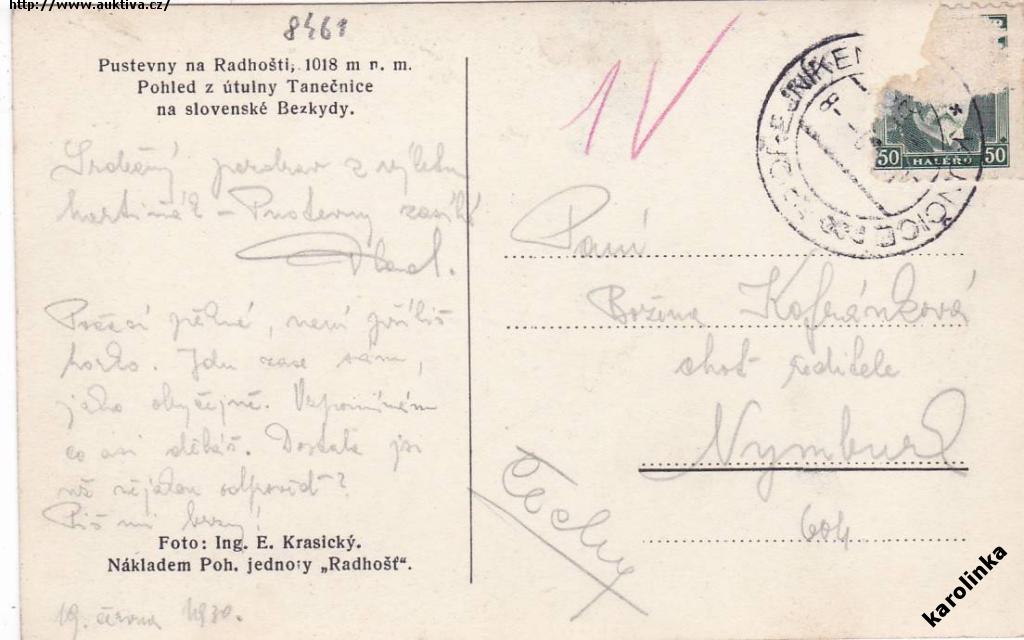 http://www.auktiva.cz/
8461
Pustevny na Radhošti, 1018 m n. m.
Pohled z útulny Tanečnice
na slovenské Bezkydy.
Srdečný pozdrav z výletu
Pustevny zasílá
Počasí pěkné, není příliš
horko. Jdu zase sám,
jako obyčejně. Vzpomínám
co asi děláš. Dostala jsi
už nějakou odpověď?
Piš mi brzy!
Foto: Ing. E. Krasický.
Nákladem Poh. jednoty „Radhošť".
19. června 1930.
50 HALÉŘŮ 50
Paní
Božena Kofránková
choť ředitele
Nymburk
604
Čechy
karolinka